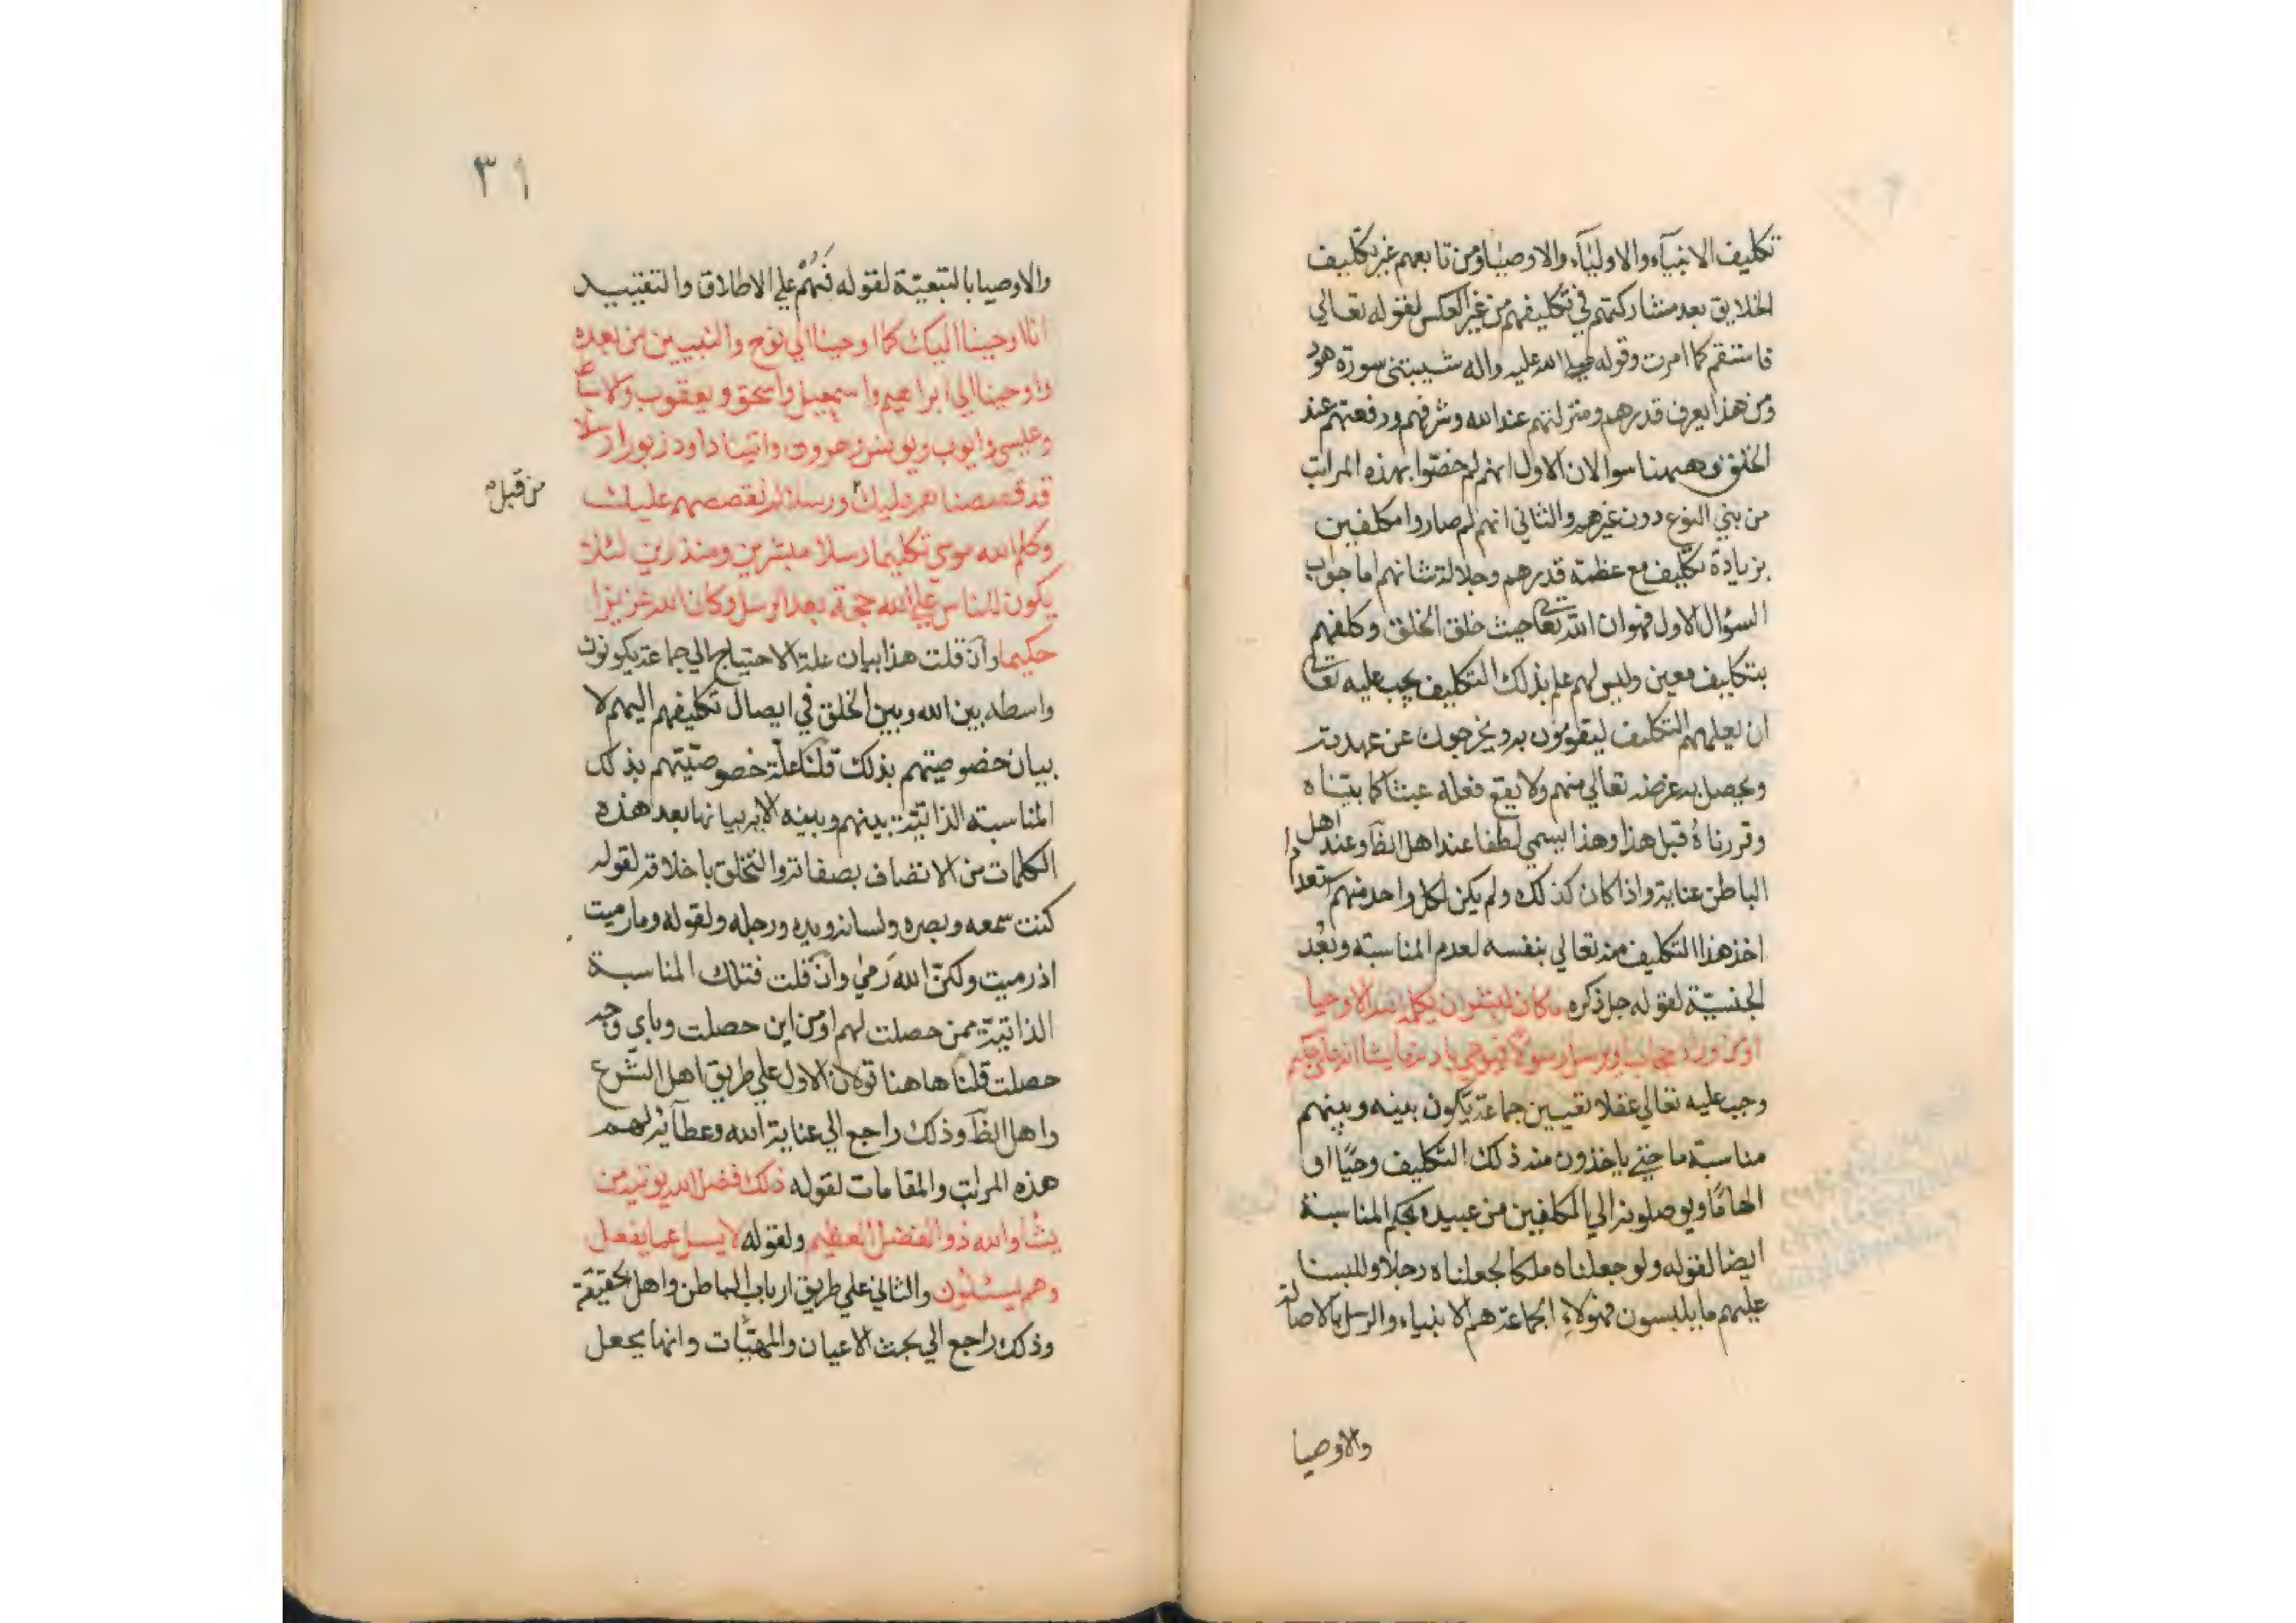 تكليف الانبيآء والاوليآء والاوصيا ومن تابعهم غير تكليف
الخلايق بعد مشاركتهم في تكليفهم من غير العكس لقوله تعالي
فاستقم كما امرت وقوله صلي الله عليه واله شيبتني سورة هود
ومن هذا يعرف قدرهم ومنزلتهم عند الله وشرفهم ورفعتهم عند
الخلق وههنا سوالان الاول انهم لم خصّوا بهذه المراتب
من بني النوع دون غيرهم والثاني انهم لم صاروا مكلفين
بزيادة تكليف مع عظمة قدرهم وجلالة شانهم اما جواب
السؤال الاول فهو ان الله تعالي حيث خلق الخلق وكلفهم
بتكليف معين وليس لهم علم بذلك التكليف يجب عليه تعالي
ان يعلمهم التكليف ليقومون به ويخرجون عن عهدته
ويحصل به غرضه تعالي منهم ولا يقع فعله عبثا كما بيّناه
وقررناهُ قبل هذا وهذا يسمي لطفا عند اهل الظآ وعند اهل
الباطن عناية واذا كان كذلك ولم يكن لكل واحد منهم استعداد
اخذ هذا التكليف منه تعالي بنفسه لعدم المناسبة وبُعْد
الجنسيّة لقوله جل ذكره ما كان لبشر ان يكلمه الله الا وحيا
او من وراء حجاب او يرسل رسولا فيوحي باذنه ما يشا انه علي حكيم
وجب عليه تعالي عقلا تعيين جماعة يكون بينه وبينهم
مناسبة ما حتي ياخذون منه ذلك التكليف وحيًا او
الهامًا ويوصلونه الي المكلفين من عبيده بحكم المناسبة
ايضا لقوله ولو جعلناه ملكا لجعلناه رجلا وللبسنا
عليهم ما يلبسون فهولاءِ الجماعة هم الانبياء والرسل بالاصالة
والاوصيا
٣١
والاوصيا بالتبعيّة لقوله فَهُمْ علي الاطلاق والتقييد
انا اوحينا اليك كما اوحينا الي نوح والنبيين من بعده
واوحينا الي ابراهيم واسمعيل واسحق ويعقوب والاسباط
وعيسي وايوب ويونس وهرون واتينا داود زبورا ورسلا
قد قصصناهم عليك ورسلا لم نقصصهم عليك
من قبل
وكلم الله موسي تكليما رسلا مبشرين ومنذرين لئلا
يكون للناس علي الله حجة بعد الرسل وكان الله عزيزا
حكيما وان قلت هذا بيان علة الاحتياج الي جماعة يكونون
واسطه بين الله وبين الخلق في ايصال تكليفهم اليهم لا
بيان خصوصيتهم بذلك قلنا علّة خصوصيّتهم بذلك
المناسبة الذاتيّة بينهم وبينه الاتي بيانها بعد هذه
الكلمات من الاتصاف بصفاته والتخلق باخلاقه لقوله
كنت سمعه وبصره ولسانه ويده ورجله ولقوله وما رميت
اذ رميت ولكنّ الله رَمي وان قلت فتلك المناسبة
الذاتيّة ممن حصلت لهم او من اين حصلت وباي وجه
حصلت قلنا هاهنا قولان الاول علي طريق اهل الشّرع
واهل الظآ وذلك راجع الي عناية الله وعطآئه لهم
هذه المراتب والمقامات لقوله ذلك فضل الله يوتيه من
يشا والله ذو الفضل العظيم ولقوله لا يسل عما يفعل
وهم يسئلون والثاني علي طريق ارباب الباطن واهل الحقيقة
وذلك راجع الي بحث الاعيان والمهيّات وانها بجعل